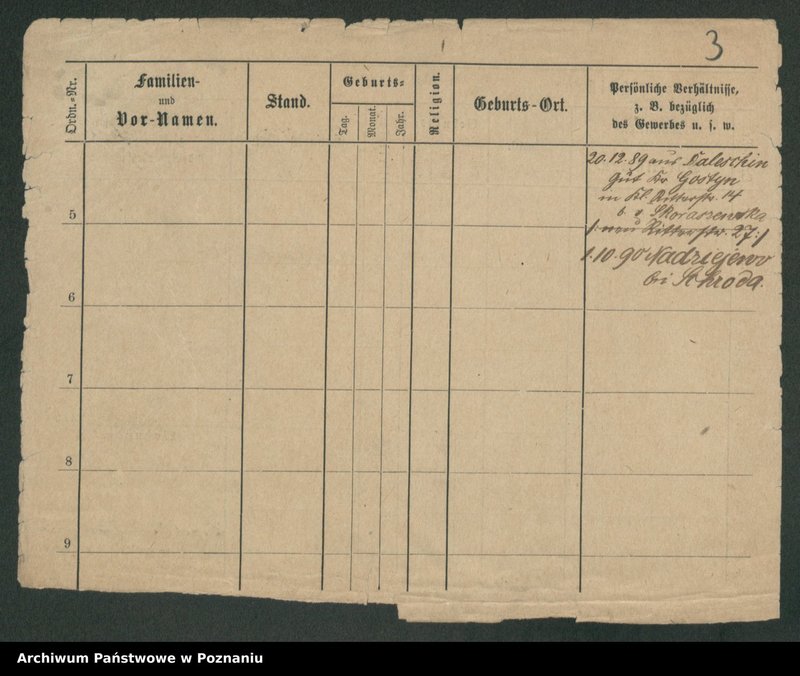 3
Ordn.-Nr.
Familien-
und
Vor-Namen.
Stand.
Geburts-
Tag.
Monat.
Jahr.
Religion.
Geburts-Ort.
Persönliche Verhältnisse,
z. B. bezüglich
des Gewerbes u. s. w.
20.12.89 aus Daleschin
gut Kr Gostyn
in Kl. Ritterstr. 14
b. v Skoraszewska
/: neu Ritterstr. 27 :/
1.10.90 Nadziejewo
bei Schroda.
5
6
7
8
9
Archiwum Państwowe w Poznaniu